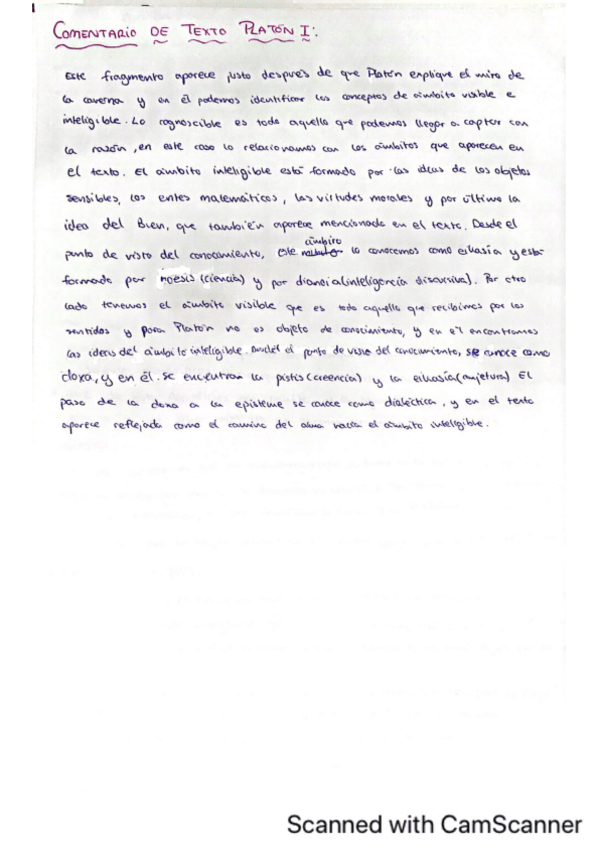 COMENTARIO DE TEXTO PLATÓN I:
Este fragmento aparece justo después de que Platón explique el mito de
la caverna y en él podemos identificar los conceptos de ámbito visible e
inteligible. Lo cognoscible es todo aquello que podemos llegar a captar con
la razón, en este caso lo relacionamos con los ámbitos que aparecen en
el texto. El ámbito inteligible está formado por las ideas de los objetos
sensibles, los entes matemáticos, las virtudes morales y por último la
idea del Bien, que también aparece mencionada en el texto. Desde el
punto de vista del conocimiento, este ámbito lo conocemos como eikasía y está
formado por noesis (ciencia) y por dianoia (inteligencia discursiva). Por otro
lado tenemos el ámbito visible que es todo aquello que recibimos por los
sentidos y para Platón no es objeto de conocimiento, y en él encontramos
las ideas del ámbito inteligible. el punto de vista del conocimiento, se conoce como
doxa, y en él se encuentran la pistis (creencia) y la eikasía (conjetura) El
paso de la doxa a la episteme se conoce como dialéctica, y en el texto
aparece reflejada como el camino del alma hacia el ámbito inteligible.
Scanned with CamScanner